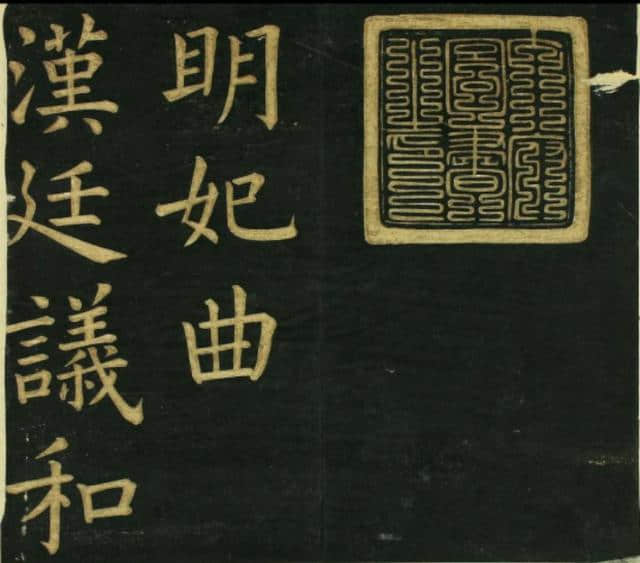 明妃曲
漢廷議和